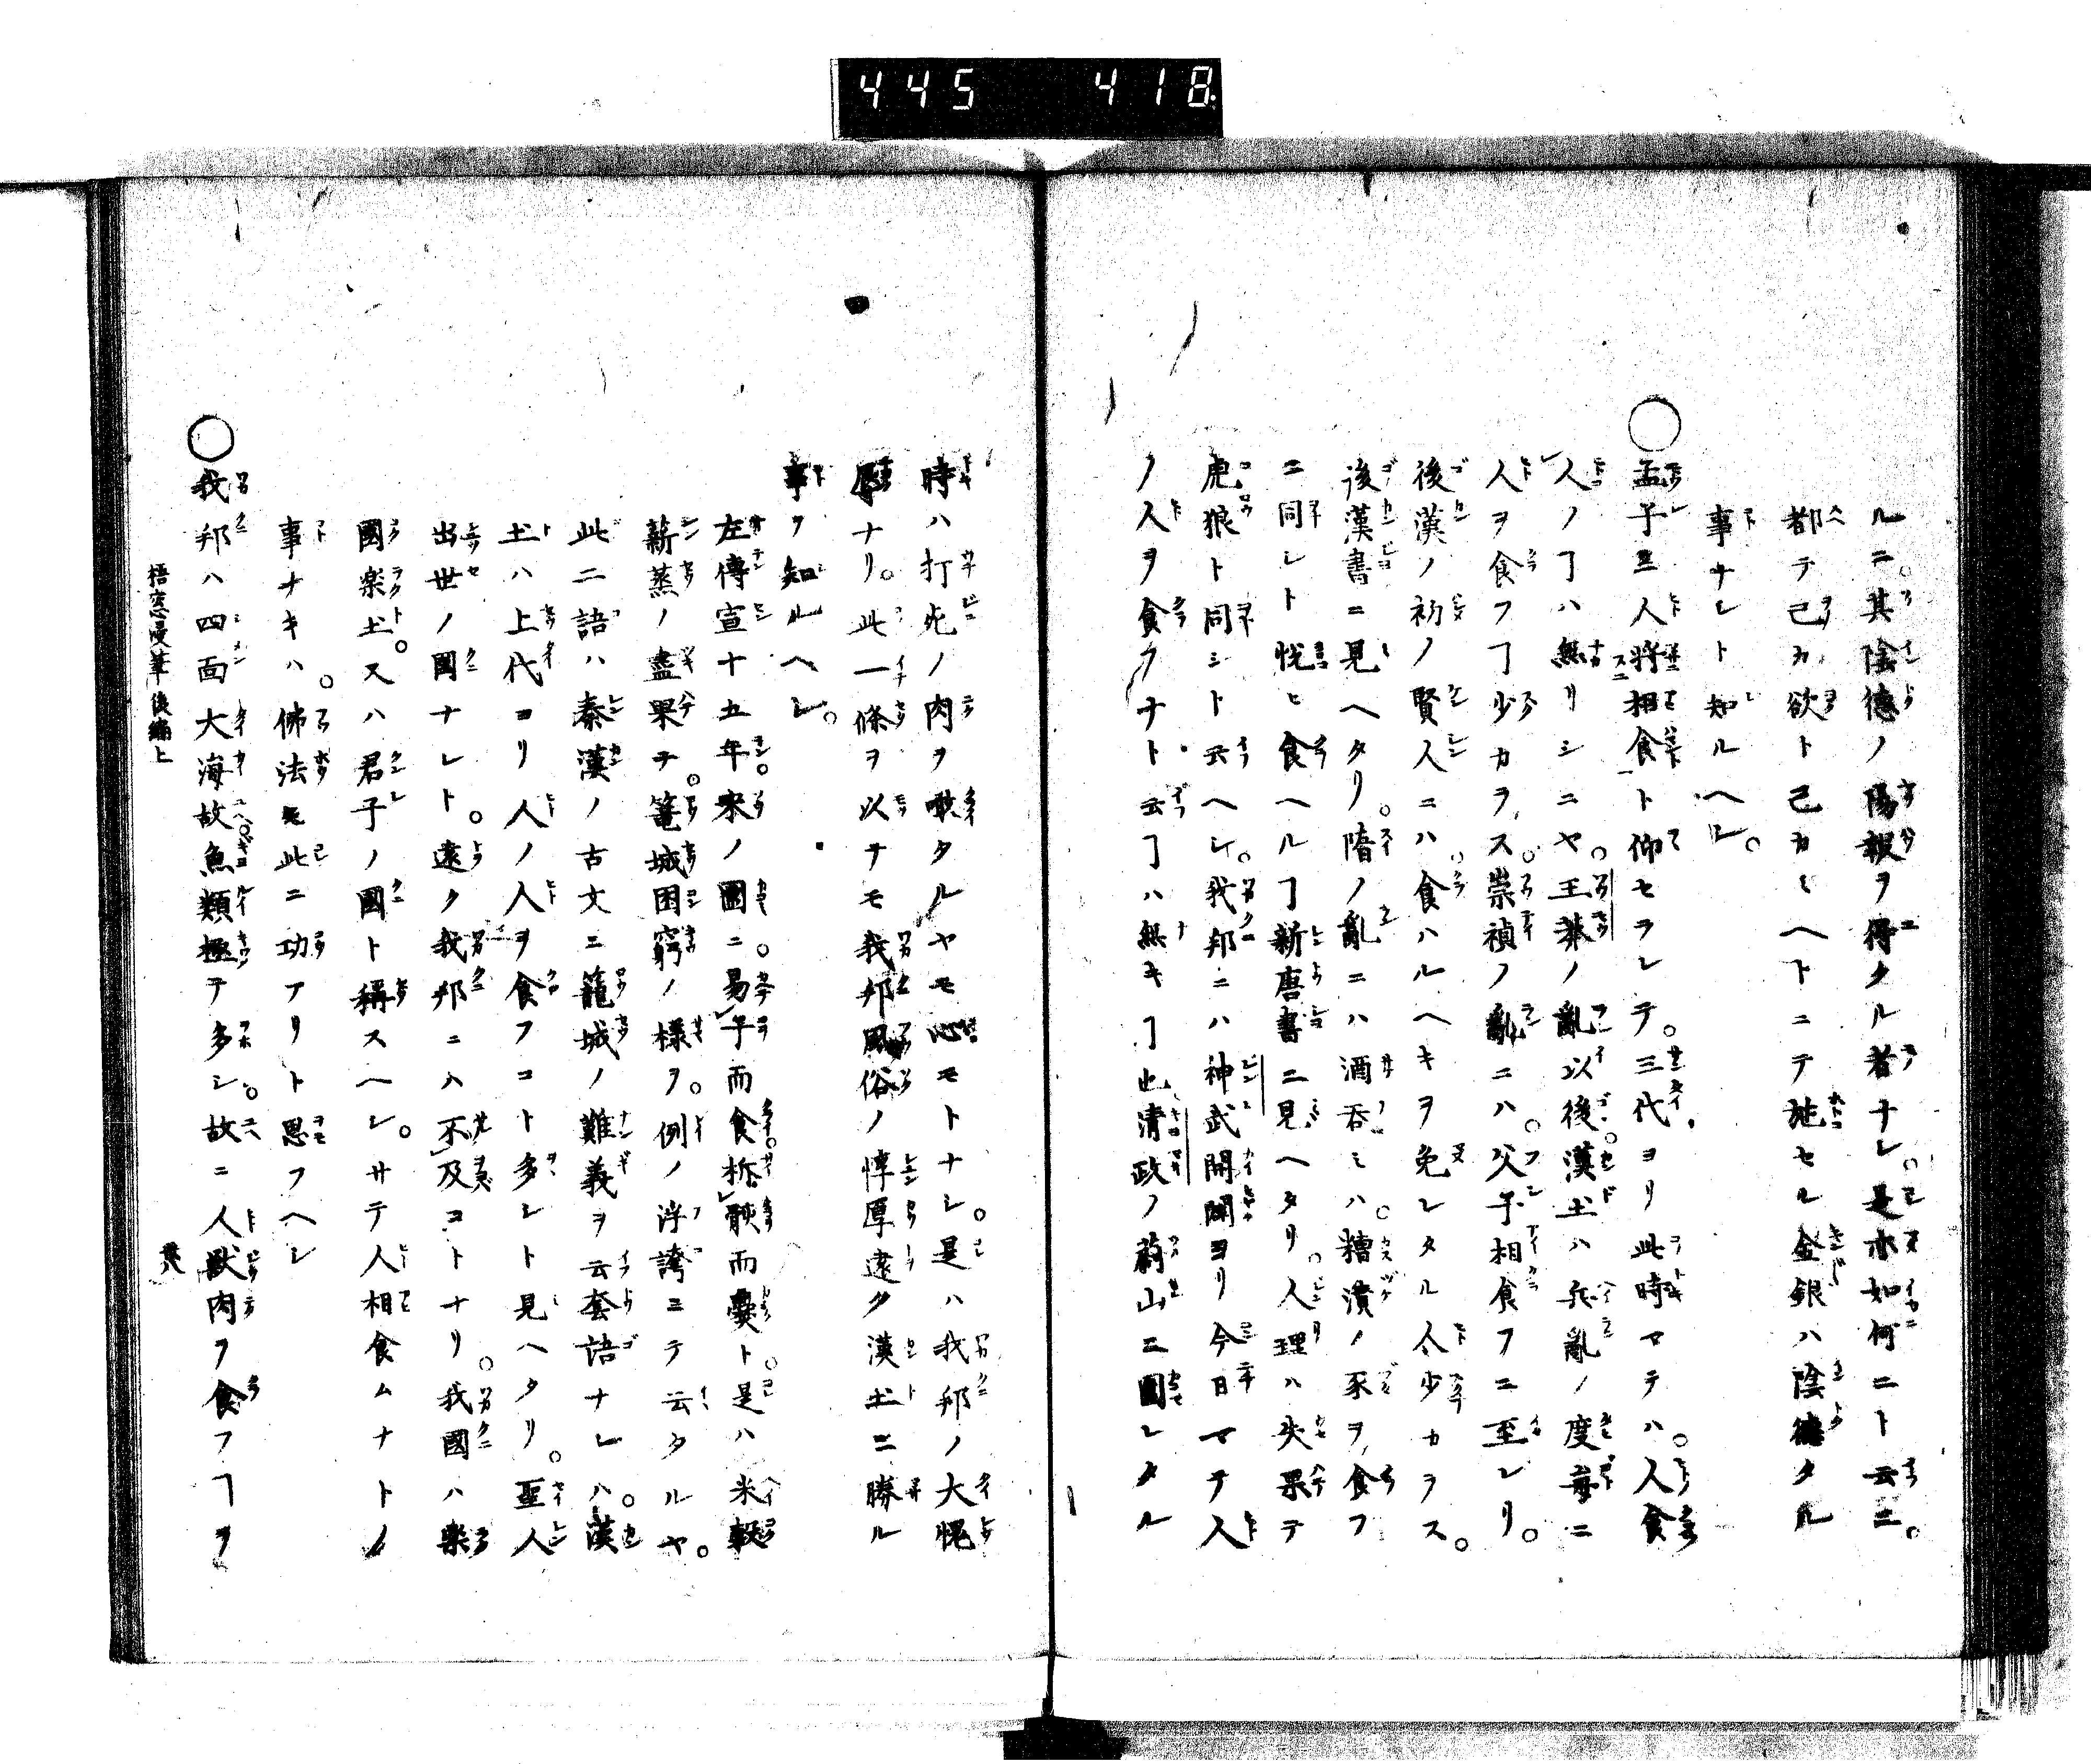 445 418
ルニ。其陰徳ノ陽報ヲ得タル者ナシ。是亦如何ニト云ニ。
都テ己カ欲ト己カヽヘトニテ施セル金銀ハ陰徳タル
事ナシト知ルヘシ。
○孟子ニ人將相食ト仰セラレテ。三代ヨリ此時マテハ。人食
人ノヿハ無リシニヤ。王莽ノ亂以後。漢土ハ兵亂ノ度毎ニ
人ヲ食フヿ少カラス。崇禎ノ亂ニハ。父子相食フニ至レリ。
後漢ノ初ノ賢人ニハ。食ハルヘキヲ免レタル人少カラス。
後漢書ニ見ヘタリ。隋ノ亂ニハ酒呑ミハ。糟漬ノ豕ヲ食フ
ニ同シト悦ヒ食ヘルヿ新唐書ニ見ヘタリ。人理ハ失果テ
虎狼ト同シト云ヘシ。我邦ニハ神武開闢ヨリ今日マテ人
ノ人ヲ食クナト云フヿハ無キヿ也清政ノ蔚山ニ圍レタル
時ハ打死ノ肉ヲ噉タルヤモ心モトナシ。是ハ我邦ノ大幌
ナリ。此一條ヲ以テモ我邦風俗ノ惇厚遠ク漢土ニ勝ル
事ヲ知ルヘシ。
左傳宣十五年宋ノ圍ニ。易子而食。析骸而爨ト。是ハ米穀
薪蒸ノ盡果テ。篭城困窮ノ様ヲ。例ノ浮誇ニテ云タルヤ。
此二語ハ秦漢ノ古文ニ籠城ノ難義ヲ云套語ナレハ。漢
土ハ上代ヨリ人ノ人ヲ食フコト多シト見ヘタリ。聖人
出世ノ國ナレト。遠ク我邦ニハ不及コトナリ。我國ハ樂
國楽土。又ハ君子ノ國ト稱スヘシ。サテ人相食ムナトノ
事ナキハ。佛法モ此ニ功アリト思フヘシ
○我邦ハ四面大海故魚類極テ多シ。故ニ人獸肉ヲ食フヿヲ
梧窓漫筆後編上